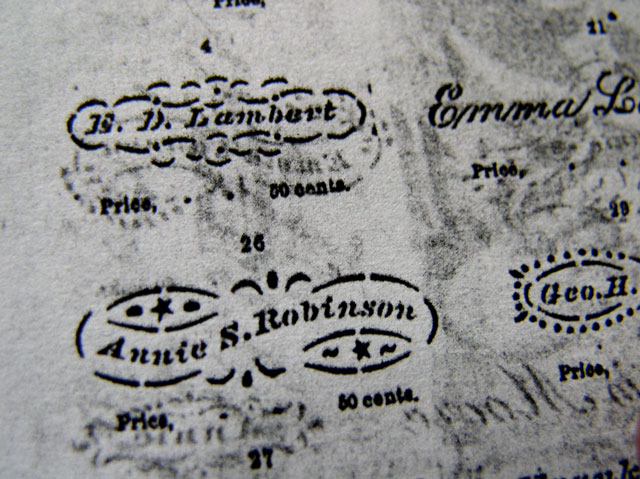 Price,
4
E. D. Lambert
Price, 50 cents.
26
Annie S. Robinson
Price, 50 cents.
27
21
Emma L
Price,
29
Geo. H.
Price,